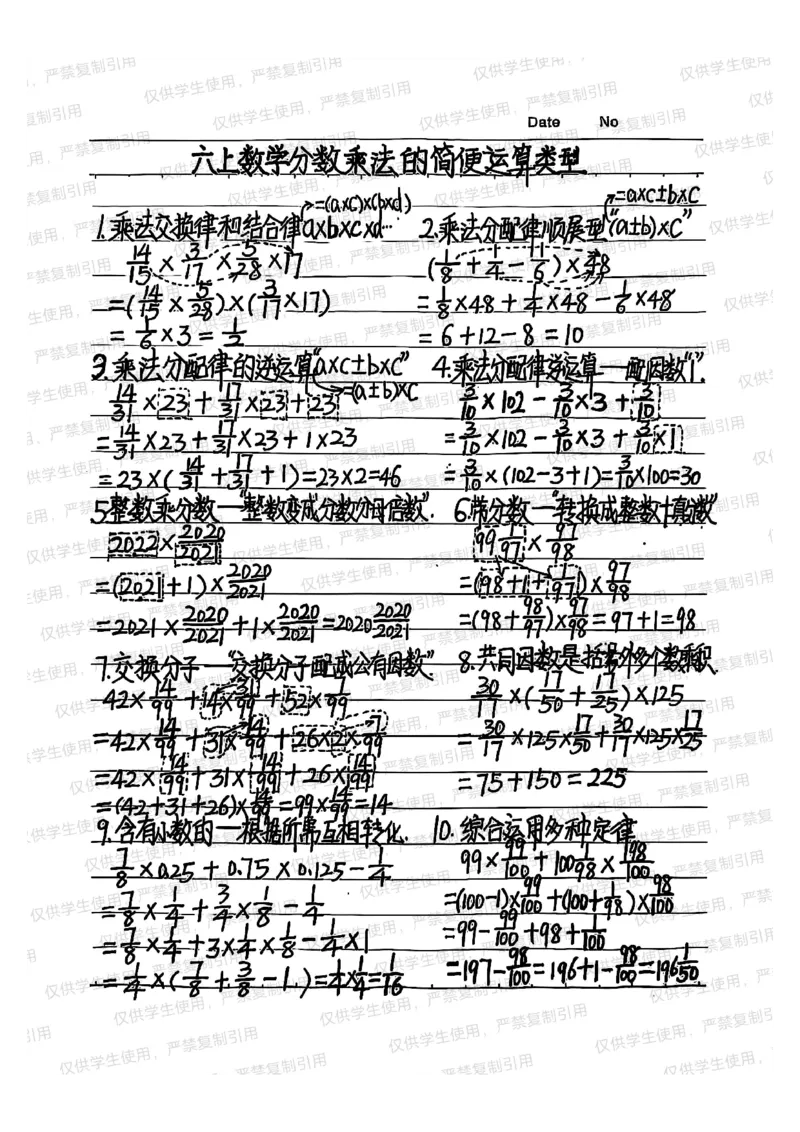 Date No
六上数学分数乘法的简便运算类型
1.乘法交换律和结合律axbxcxd… →=(axc)x(bxd)
14/15 × 3/17 × 5/28 ×17
=(14/15 × 5/28)×(3/17×17)
=1/6×3=1/2
2.乘法分配律顺展型"(a±b)×c" →=axc±bxc
(1/8+1/4-1/6)×48
=1/8×48+1/4×48-1/6×48
=6+12-8=10
3.乘法分配律的逆运算"axc±bxc" →=(a±b)xc
14/31×23+17/31×23+23
=14/31×23+17/31×23+1×23
=23×(14/31+17/31+1)=23×2=46
4.乘法分配律逆运算一配因数"1".
3/10×102-3/10×3+3/10
=3/10×102-3/10×3+3/10×1
=3/10×(102-3+1)=3/10×100=30
5.整数乘分数一"整数变成分数分母倍数".
2022×2020/2021
=(2021+1)×2020/2021
=2021×2020/2021+1×2020/2021=2020 2020/2021
6.带分数一"转换成整数+真分数"
99 1/97×97/98
=(98+1+1/97)×97/98
=(98+98/97)×97/98=97+1=98
7.交换分子一"交换分子配成公有因数"
42×14/99+14×31/99+52×7/99
=42×14/99+31×14/99+26×2×7/99
=42×14/99+31×14/99+26×14/99
=(42+31+26)×14/99=99×14/99=14
8.共同因数是括号外多个数乘积
30/17×(17/50+17/25)×125
=30/17×125×17/50+30/17×125×17/25
=75+150=225
9.含有小数的一根据所需互相转化.
7/8×0.25+0.75×0.125-1/4
=7/8×1/4+3/4×1/8-1/4
=7/8×1/4+3×1/4×1/8-1/4×1
=1/4×(7/8+3/8-1)=1/4×1/4=1/16
10.综合运用多种定律
99×99/100+100 1/98×98/100
=(100-1)×99/100+(100+1/98)×98/100
=99-99/100+98+1/100
=197-98/100=196+1-98/100=196 1/50
仅供学生使用，严禁复制引用